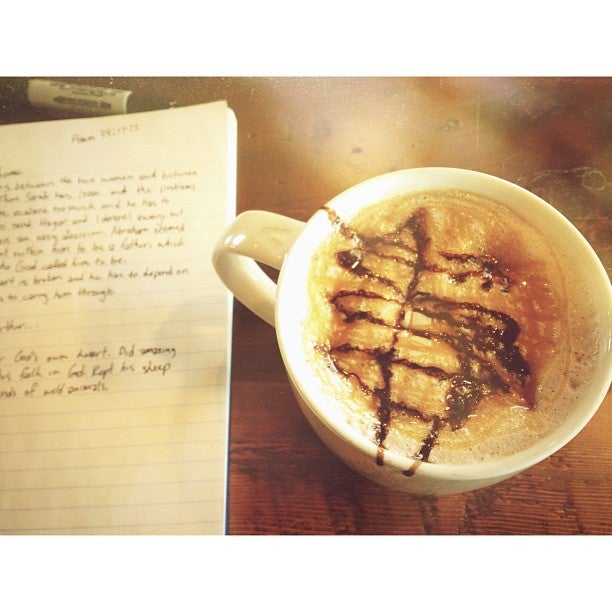 Psalm 34:17-22
s between the two women and between
Sarah has Isaac and the problems
escalates too much and he has to
send Hagar and Ishmael away; but
an easy decision. Abraham seemed
him to be a father; which
God called him to be.
is broken and he has to depend on
to carry him through.
God's own heart. Did amazing
his faith in God. Kept his sheep
nds of wild animals.